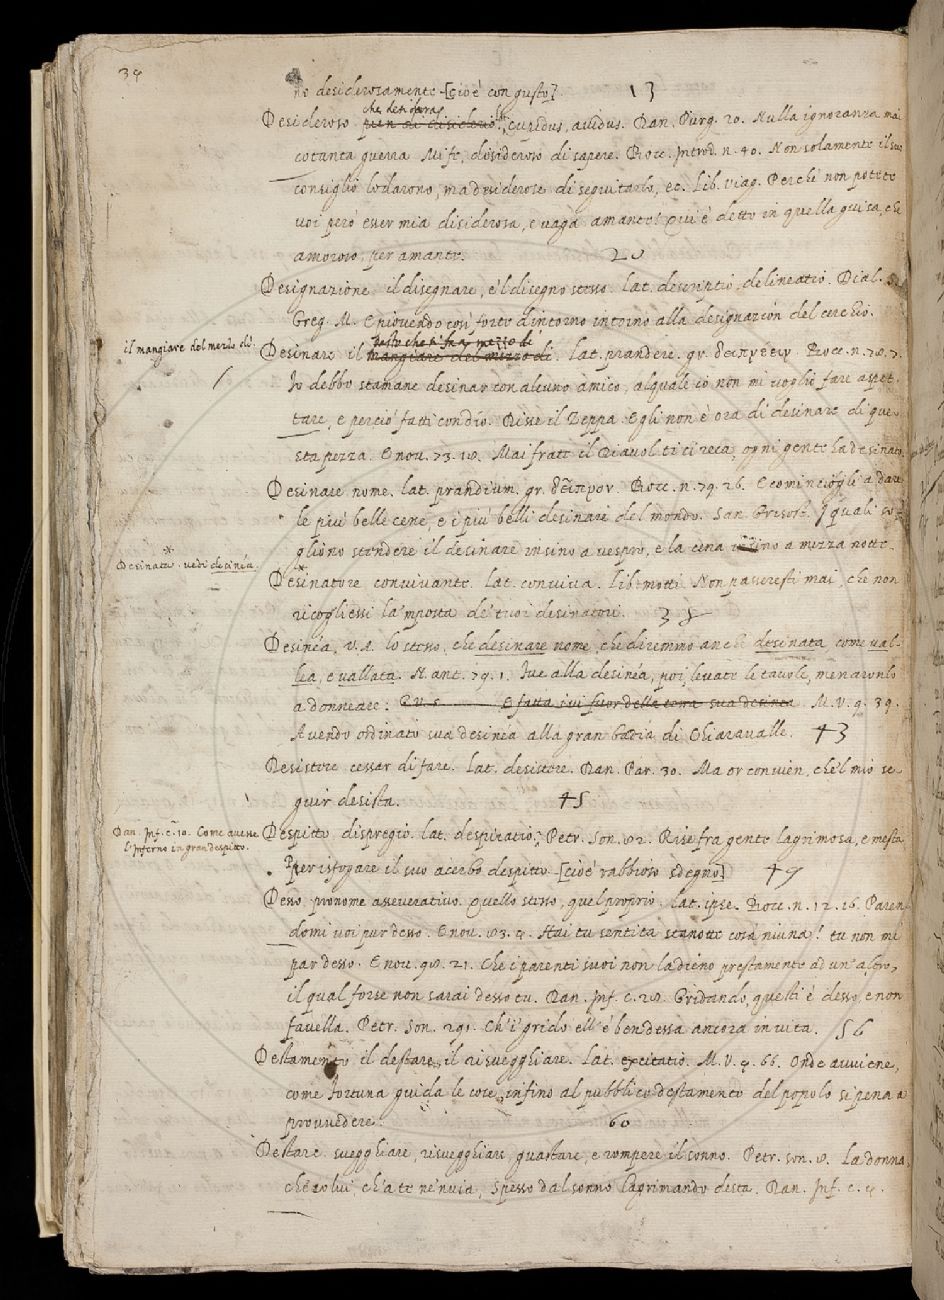 34
no desiderosamente [cioè con gusto]. 13
che desidera
Desideroso pien di disiderio, cupidus, avidus. Dan. Purg. 20. Nulla ignoranza mai
cotanta guerra Mi fe, disideroso di sapere. Bocc. Introd. n. 40. Non solamente il suo
consiglio lodarono, ma desiderosi di seguitarlo, ec. Lib. viag. Perchè non potete
voi però esser mia disiderosa, e vaga amante? Qui è detto in quella guisa, che
amoroso, per amante. 20
Designazione il disegnare, e 'l disegno stesso. lat. descriptio, delineatio. Dial. S.
Greg. M. E piovendo così forte dintorno intorno alla designazion del cerchio.
il mangiare del merito dì.
Pasto che si fa a mezzo dì
Desinare il mangiare del mezzo dì. lat. prandere. gr. δειπνειν. Bocc. n. 78. 7.
Io debbo stamane desinar con alcuno amico, al quale io non mi voglio fare aspet-
tare, e perciò fatti con dio. Disse il Zeppa. Egli non è ora di desinare di que-
sta pezza. E nov. 73. 18. Mai frate il Diavol ti ci reca, ogni gente ha desinato
Desinare nome. lat. prandium. gr. δεῖπνον. Bocc. n. 79. 26. E cominciogli a dare
le più belle cene, e i più belli desinari del mondo. San Grisost. I quali so-
gliono stendere il desinare insino a vespro, e la cena insino a mezza notte.
Desinata. vedi desinéa.
Desinatore convivante. lat. conviva. Lib. motti. Non pasceresti mai, che non
ricogliessi la 'mposta de' tuoi desinatori. 38
Desinéa, v. A. lo stesso, che desinare nome, che diremmo anche desinata, come val-
léa, e vallata. N. ant. 79. 1. Fue alla desinéa, poi, levate le tavole, menaronlo
a donneare. E fatta ivi fuor della terra sua desinéa M. V. 9. 39.
Avendo ordinato sua desinéa alla gran badía di Chiaravalle. 43
Desistere cessar di fare. Lat. desistere. Dan. Par. 30. Ma or convien, che 'l mio se-
guir desista. 45
Dan. Inf. c. 10. Come avesse
l'Inferno in gran despitto.
Despitto dispregio. lat. despicatio. Petr. Son. 82. Rise fra gente lagrimosa, e mesta
Per isfogare il suo acerbo despitto [cioè rabbioso sdegno] 49
Desso. pronome asseverativo. Quello stesso, quel proprio. lat. ipse. Bocc. n. 12. 16. Paren-
domi voi pur desso. E nov. 83. 4. Hai tu sentita stanotte cosa niuna? tu non mi
par desso. E nov. 98. 21. Che i parenti suoi non la dieno prestamente ad un' altro,
il qual forse non sarai desso tu. Dan. Inf. c. 28. Gridando, questi è desso, e non
favella. Petr. Son. 291. Ch' i' grido ell' è ben dessa ancora in vita. 56
Destamento il destare, il risvegghiare. Lat. excitatio. M. V. 4. 66. Onde avviene,
come fortuna guida le cose, infino al pubblico destamento del popolo si pena a
provvedere. 60
Destare. svegghiare, risvegghiare, guastare, e rompere il sonno. Petr. son. 8. La donna,
che colui, ch' a te ne 'nvia, Spesso dal sonno lagrimando desta. Dan. Inf. c. 4.